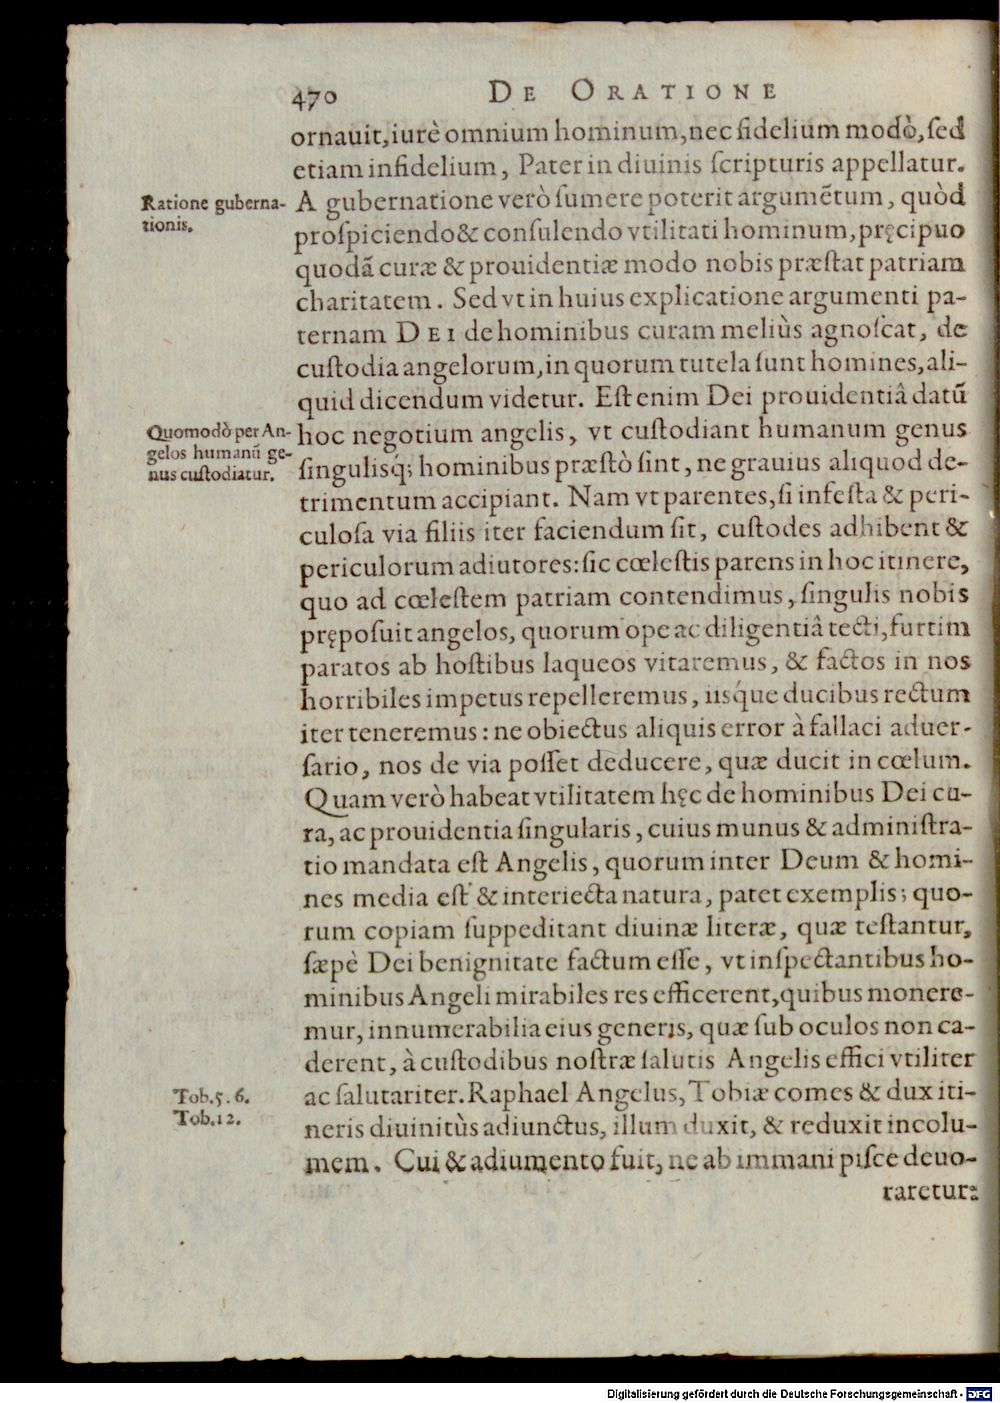 470 DE ORATIONE
ornauit, iurè omnium hominum, nec fidelium modò, ſed
etiam infidelium, Pater in diuinis ſcripturis appellatur.
Ratione guberna-
tionis.
A gubernatione verò ſumere poterit argumẽtum, quòd
proſpiciendo & conſulendo vtilitati hominum, pręcipuo
quodã curæ & prouidentiæ modo nobis præſtat patriam
charitatem. Sed vt in huius explicatione argumenti pa-
ternam DEI de hominibus curam meliùs agnoſcat, de
cuſtodia angelorum, in quorum tutela ſunt homines, ali-
quid dicendum videtur. Eſt enim Dei prouidentiâ datũ
Quomodò per An-
gelos humanũ ge-
nus cuſtodiatur.
hoc negotium angelis, vt cuſtodiant humanum genus
ſinguliſq́; hominibus præſtò ſint, ne grauius aliquod de-
trimentum accipiant. Nam vt parentes, ſi infeſta & peri-
culoſa via filiis iter faciendum ſit, cuſtodes adhibent &
periculorum adiutores: ſic cœleſtis parens in hoc itinere,
quo ad cœleſtem patriam contendimus, ſingulis nobis
prępoſuit angelos, quorum ope ac diligentiâ tecti, furtim
paratos ab hoſtibus laqueos vitaremus, & factos in nos
horribiles impetus repelleremus, iisq́ue ducibus rectum
iter teneremus: ne obiectus aliquis error à fallaci aduer-
ſario, nos de via poſſet deducere, quæ ducit in cœlum.
Quam verò habeat vtilitatem hęc de hominibus Dei cu-
ra, ac prouidentia ſingularis, cuius munus & adminiſtra-
tio mandata eſt Angelis, quorum inter Deum & homi-
nes media eſt & interiecta natura, patet exemplis; quo-
rum copiam ſuppeditant diuinæ literæ, quæ teſtantur,
ſæpè Dei benignitate factum eſſe, vt inſpectantibus ho-
minibus Angeli mirabiles res efficerent, quibus monere-
mur, innumerabilia eius generis, quæ ſub oculos non ca-
derent, à cuſtodibus noſtræ ſalutis Angelis effici vtiliter
Tob. 5. 6.
Tob. 12.
ac ſalutariter. Raphael Angelus, Tobiæ comes & dux iti-
neris diuinitùs adiunctus, illum duxit, & reduxit incolu-
mem. Cui & adiumento fuit, ne ab immani piſce deuo-
raretur:
Digitalisierung gefördert durch die Deutsche Forschungsgemeinschaft - DFG